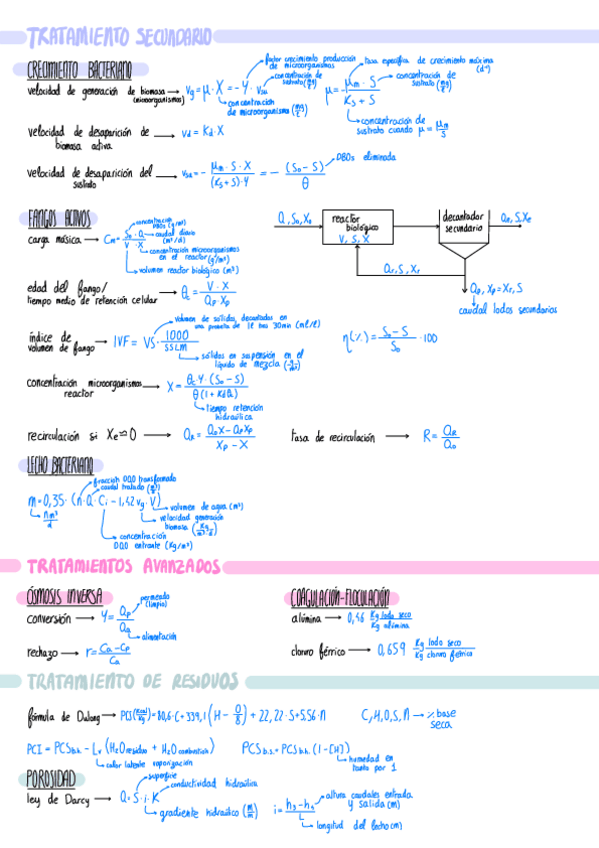 TRATAMIENTO SECUNDARIO
CRECIMIENTO BACTERIANO
velocidad de generación de biomasa → Vg = μ · X = - Y · Vsu
(microorganismos)
factor crecimiento producción de microorganismos
concentración de sustrato
concentración de microorganismos
μ = μm · S / Ks + S
tasa específica de crecimiento máxima (d⁻¹)
concentración de sustrato
concentración de sustrato cuando μ = μm/
velocidad de desaparición de biomasa activa → Vd = Kd · X
velocidad de desaparición del sustrato → Vsu = - μm · S · X / (Ks + S) · Y = - (So - S) / θ
DBO5 eliminada
FANGOS ACTIVOS
carga másica → Cm = So · Q / V · X
concentración DBO5 (g/m³)
caudal diario (m³/d)
concentración microorganismos en el reactor (g/m³)
volumen reactor biológico (m³)
Q, So, Xo
reactor biológico
V, S, X
decantador secundario
Qe, S, Xe
Qr, S, Xr
Qp, Xp = Xr, S
caudal lodos secundarios
edad del fango/
tiempo medio de retención celular → θc = V · X / Qp Xp
índice de volumen de fango → IVF = VS · 1000 / SSLM
volumen de sólidos, decantados en una probeta de 1l tras 30min (ml/l)
sólidos en suspensión en el líquido de mezcla
η(%) = So - S / So · 100
concentración microorganismos reactor → X = θc · Y · (So - S) / θ (1 + Kd θc)
tiempo retención hidráulica
recirculación si Xe ≃ 0 → QR = Qo X - Qp Xp / Xp - X
tasa de recirculación → R = QR / Qo
LECHO BACTERIANO
m = 0,35 · (n · Q · Ci - 1,42 vg · V)
fracción DQO transformada
caudal tratado
volumen de agua (m³)
velocidad generación biomasa
concentración DQO entrante (Kg/m³)
TRATAMIENTOS AVANZADOS
ÓSMOSIS INVERSA
conversión → Y = Qp / Qa
permeado (limpio)
alimentación
rechazo → r = Ca - Cp / Ca
COAGULACIÓN-FLOCULACIÓN
alúmina → 0,46 Kg lodo seco / Kg alúmina
cloruro férrico → 0,659 Kg lodo seco / Kg cloruro férrico
TRATAMIENTO DE RESIDUOS
fórmula de Dulong → PCI (Kcal/Kg) = 80,6 · C + 339,1 (H - O/8) + 22,22 · S + 5,56 · N
C, H, O, S, N → % base seca
PCI = PCS b.h. - Lv (H2O residuo + H2O combustión)
calor latente vaporización
PCS b.s. = PCS b.h. (1 - [H])
humedad en tanto por 1
POROSIDAD
ley de Darcy → Q = S · i · K
superficie
conductividad hidráulica
gradiente hidráulico (m/m)
i = h3 - h4 / L
altura caudales entrada y salida (m)
longitud del lecho (m)